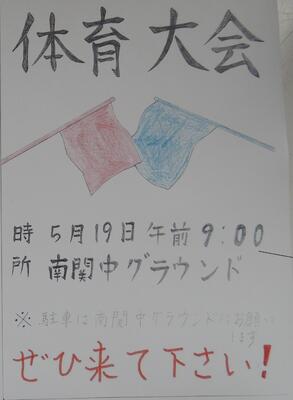 体育大会
時 5月19日 午前 9:00
所 南関中グラウンド
※ 駐車は南関中グラウンドにお願い
します
ぜひ来て下さい!